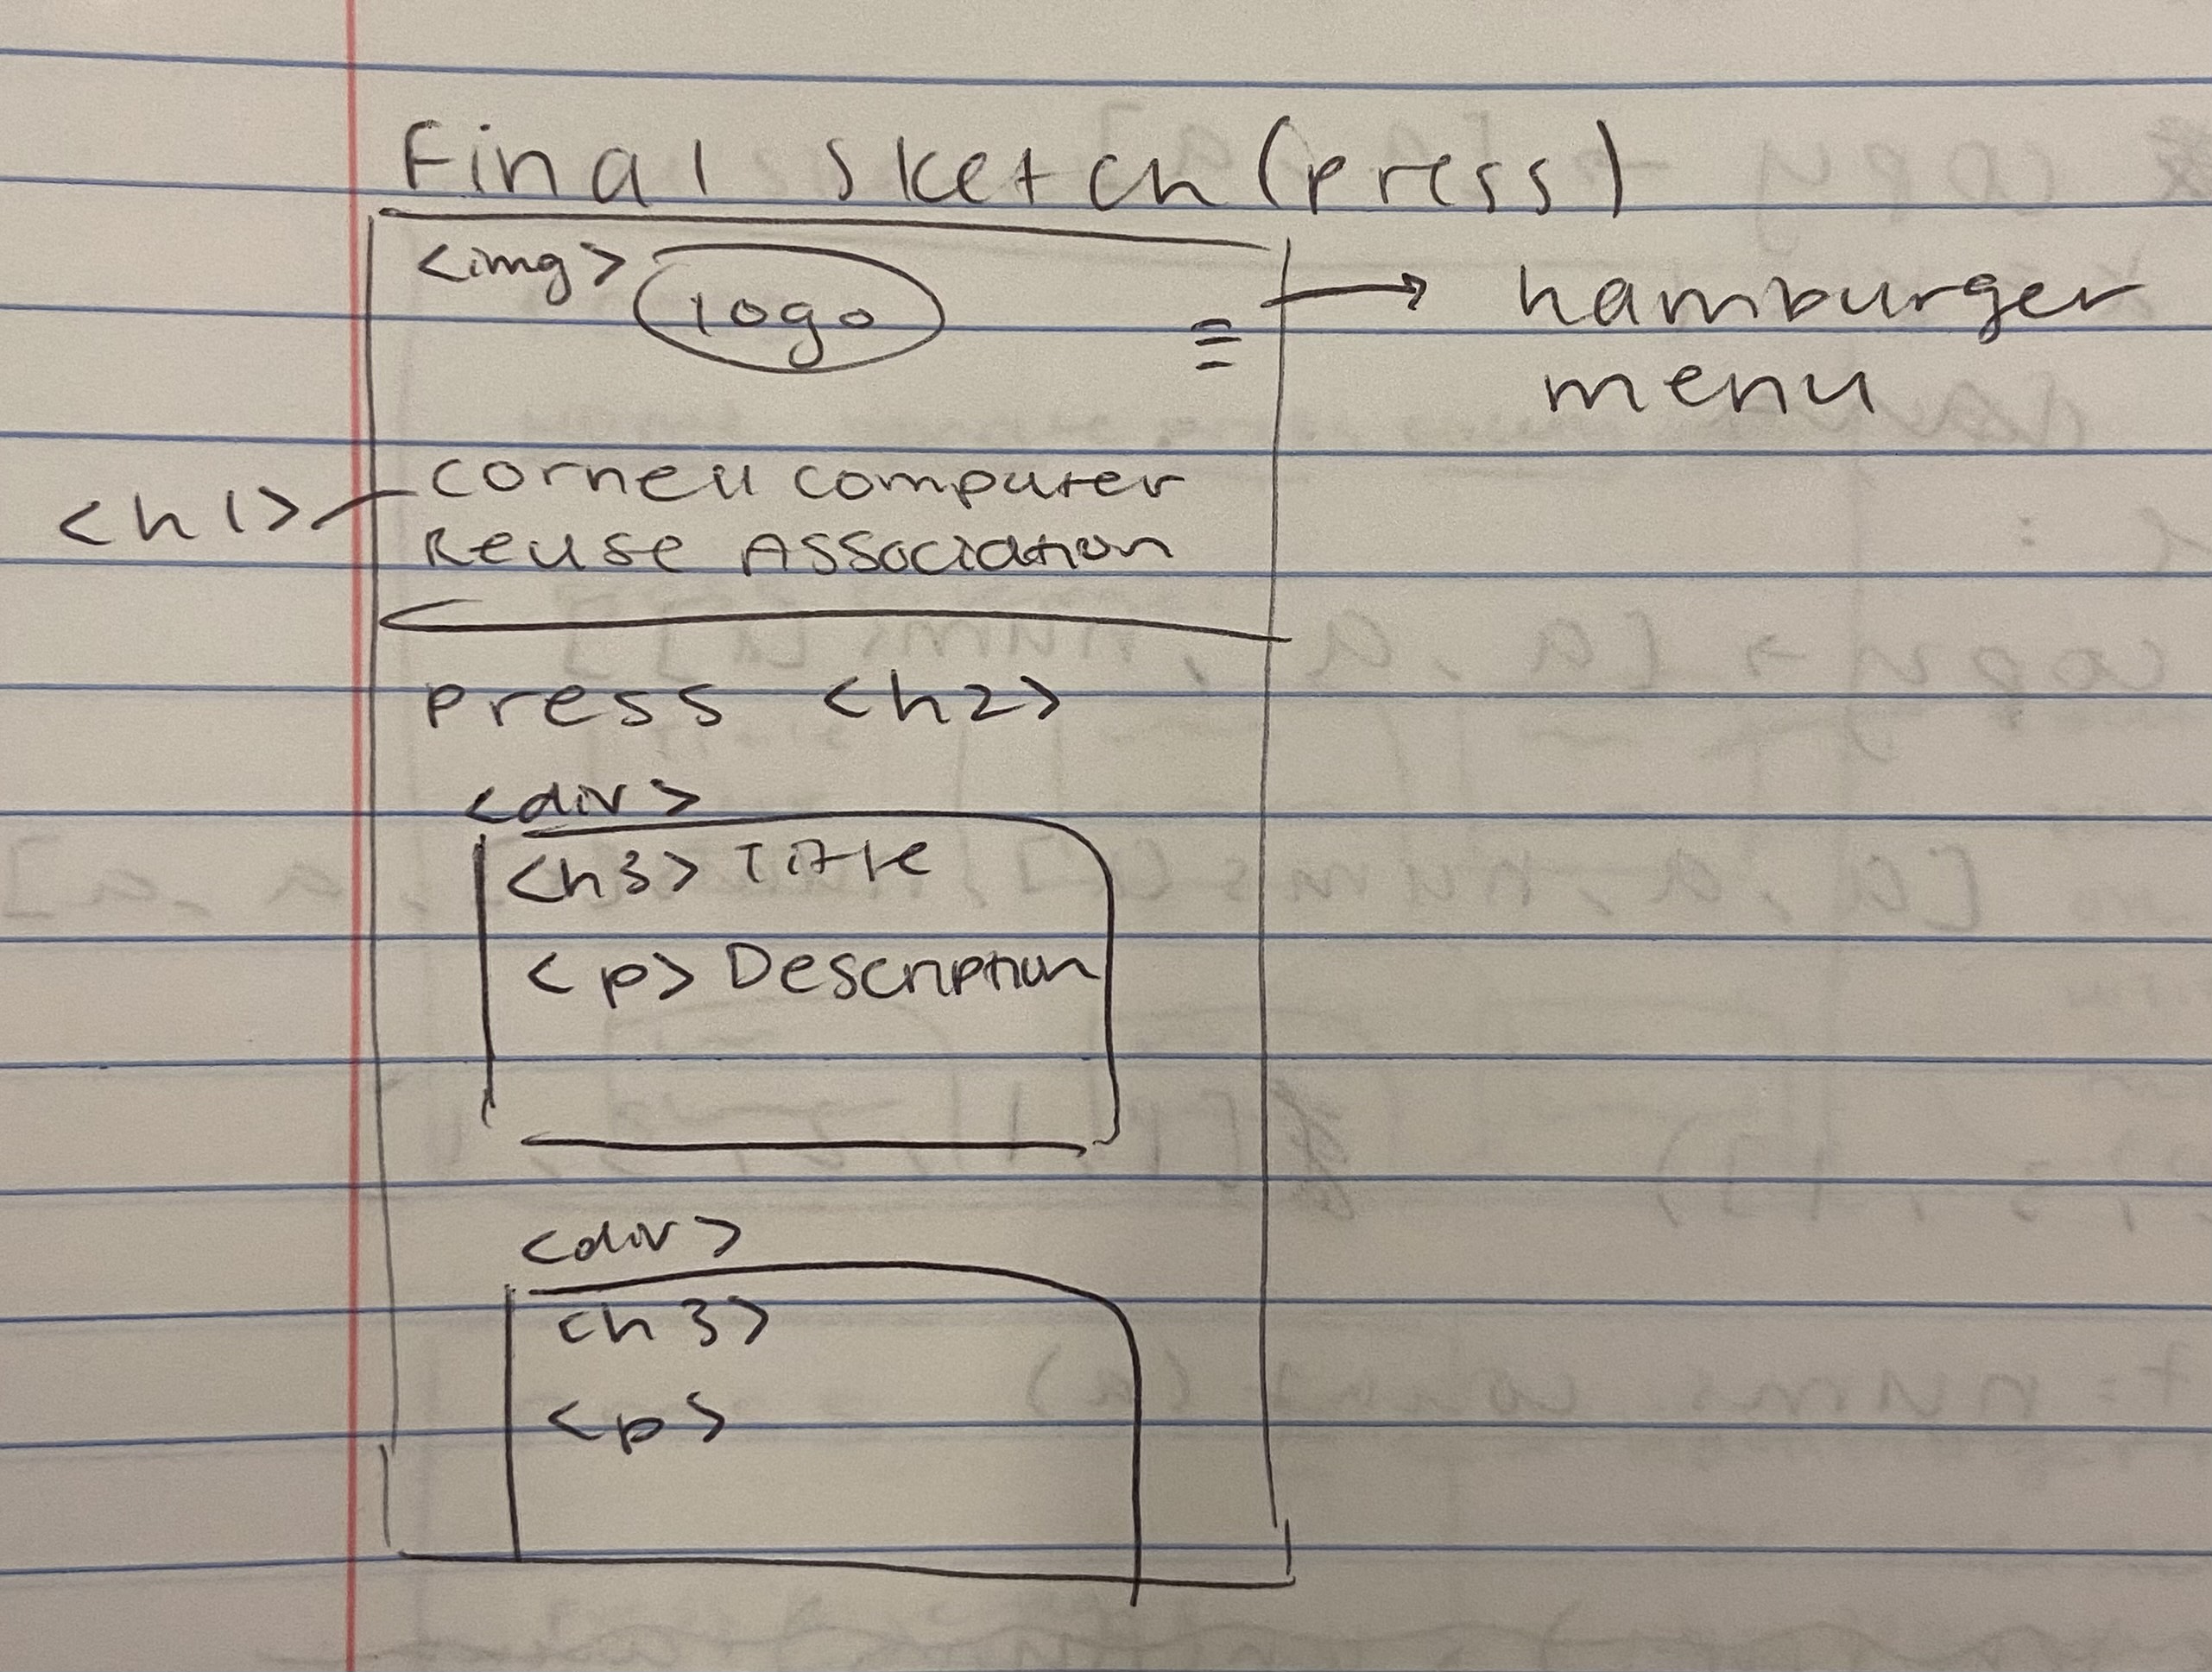 Final Sketch (press)
<img> logo
→ hamburger
menu
<h1> Cornell Computer
Reuse Association
press <h2>
<div>
<h3> Title
<p> Description
<div>
<h3>
<p>